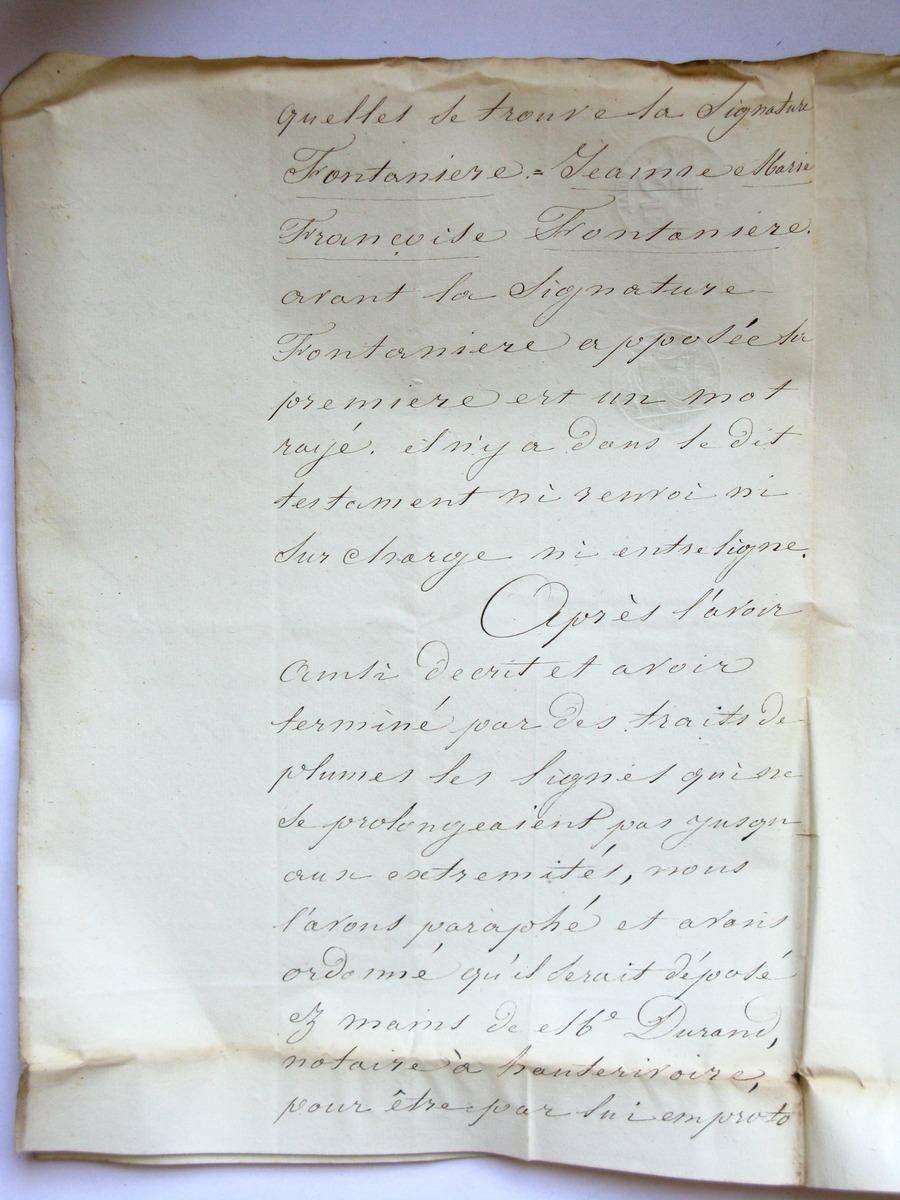 quelles se trouve la Signature
Fontaniere.= Jeanne Marie
Françoise Fontaniere.
avant la Signature
Fontaniere apposée la
premiere est un mot
rayé. il n'y a dans le dit
testament ni renvoi ni
surcharge ni entreligne.
Après l'avoir
ainsi decrit et avoir
terminé par des traits de
plumes les lignes qui ne
se prolongeaient pas jusqu
aux extremités, nous
l'avons paraphé et avons
ordonné qu'il serait déposé
ez mains de Me Durand,
notaire à hauterivoire,
pour être par lui emproto